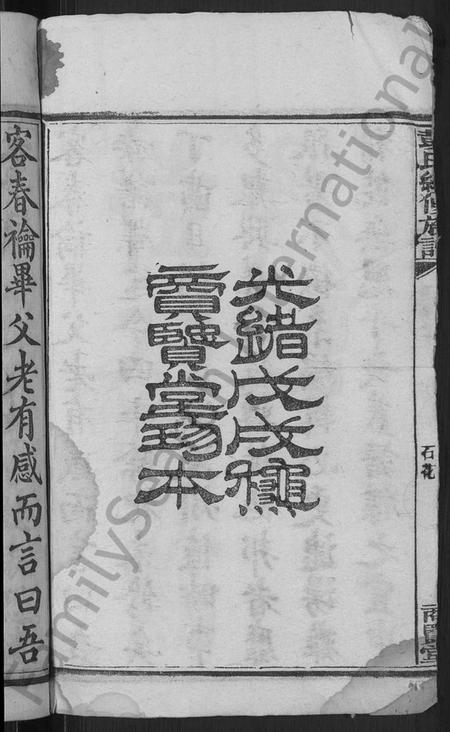 彭氏續修族譜
石花
賢堂
光緒戊戌龝
賢堂珍本
客春禴畢父老有感而言曰吾
FamilySearch International